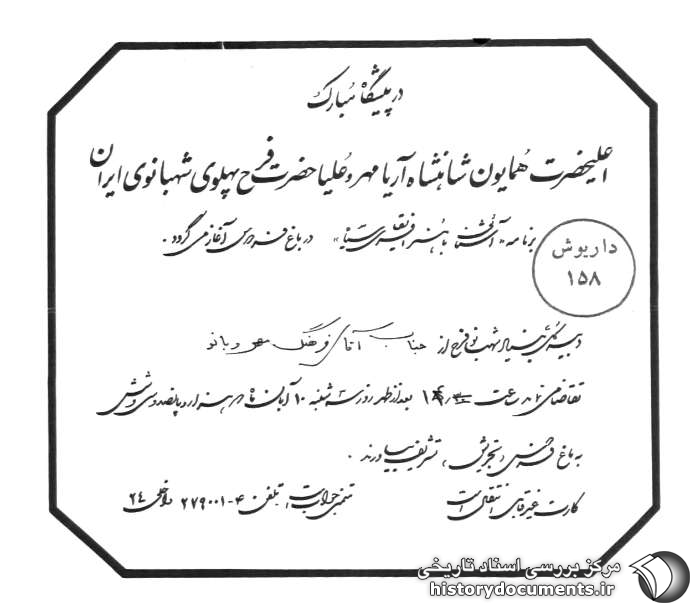 در پیشگاه مبارک
اعلیحضرت همایون شاهنشاه آریامهر و علیاحضرت فرح پهلوی شهبانوی ایران
برنامه «آشنائی با هنر افریقای سیاه» در باغ فردوس آغاز می گردد .
داریوش
۱۵۸
دبیر کل بنیاد شهبانو فرح از جناب آقای فرهنگ مهر و بانو
تقاضا می نماید ساعت بعدازظهر روز سه شنبه ۱۰ آبان ماه دو هزار و پانصد و سی و شش
به باغ فردوس، تجریش، تشریف بیاورند .
کارت غیر قابل انتقال است
متمنی جواب است، تلفن ۴-۲۷۹۰۰۱ داخلی ۲۴
مرکز بررسی اسناد تاریخی
historydocuments.ir